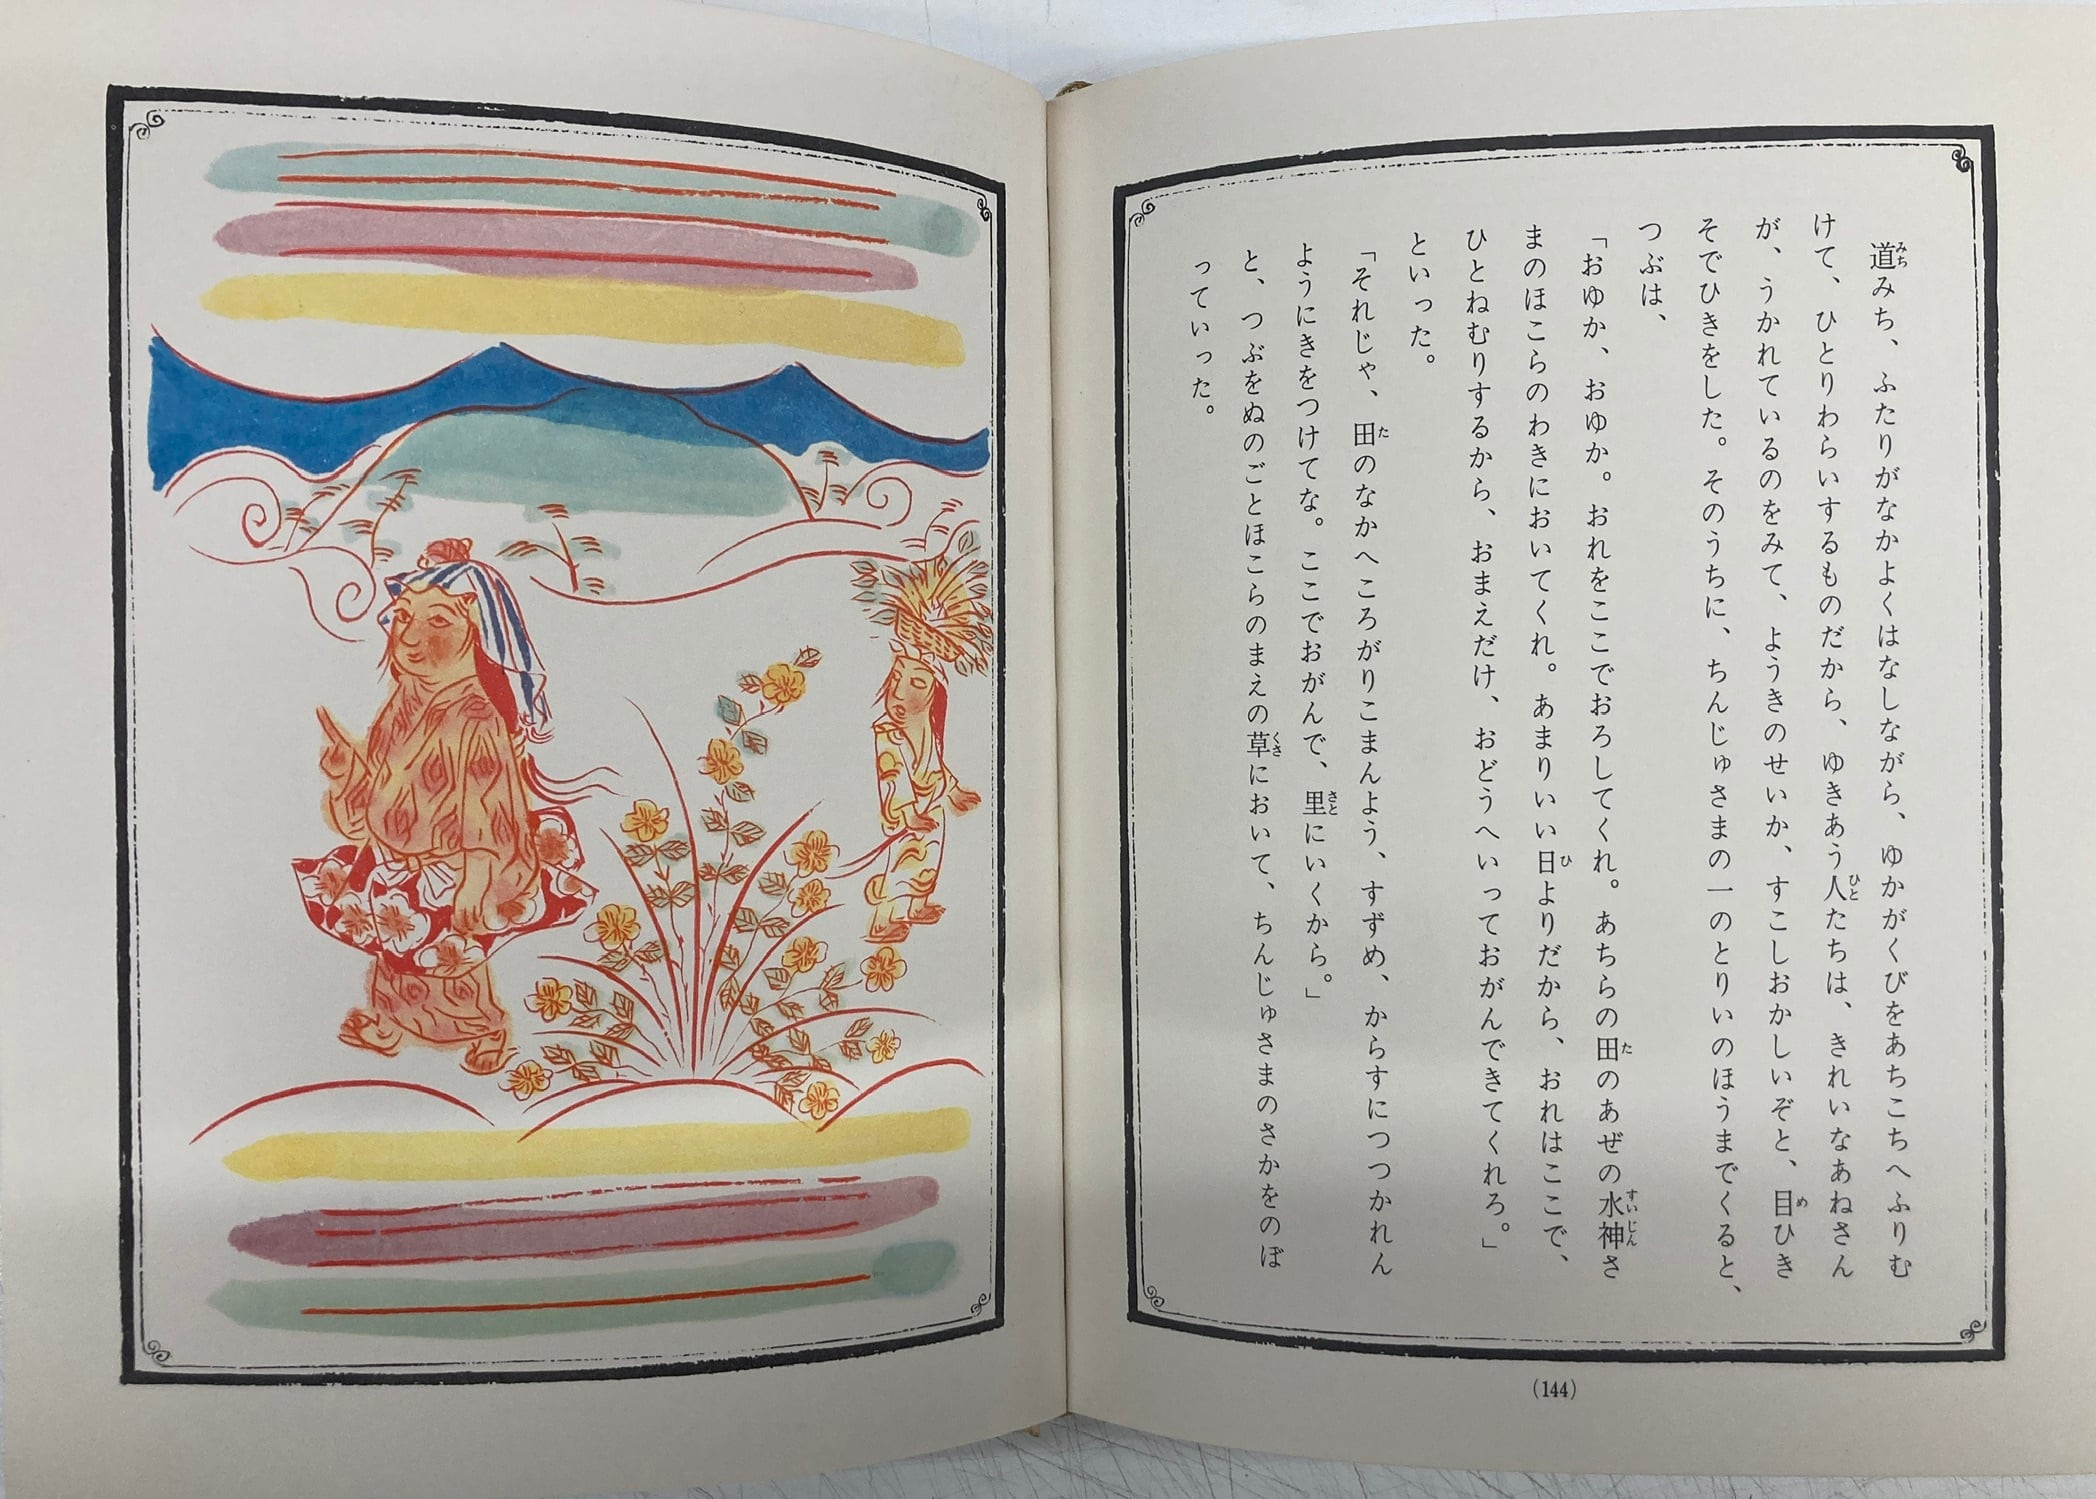 道みち、ふたりがなかよくはなしながら、ゆかがくびをあちこちへふりむ
けて、ひとりわらいするものだから、ゆきあう人たちは、きれいなあねさん
が、うかれているのをみて、ようきのせいか、すこしおかしいぞと、目ひき
そでひきをした。そのうちに、ちんじゅさまの一のとりいのほうまでくると、
つぶは、
「おゆか、おゆか。おれをここでおろしてくれ。あちらの田のあぜの水神さ
まのほこらのわきにおいてくれ。あまりいい日よりだから、おれはここで、
ひとねむりするから、おまえだけ、おどうへいっておがんできてくれろ。」
といった。
「それじゃ、田のなかへころがりこまんよう、すずめ、からすにつつかれん
ようにきをつけてな。ここでおがんで、里にいくから。」
と、つぶをぬのごとほこらのまえの草において、ちんじゅさまのさかをのぼ
っていった。
(144)